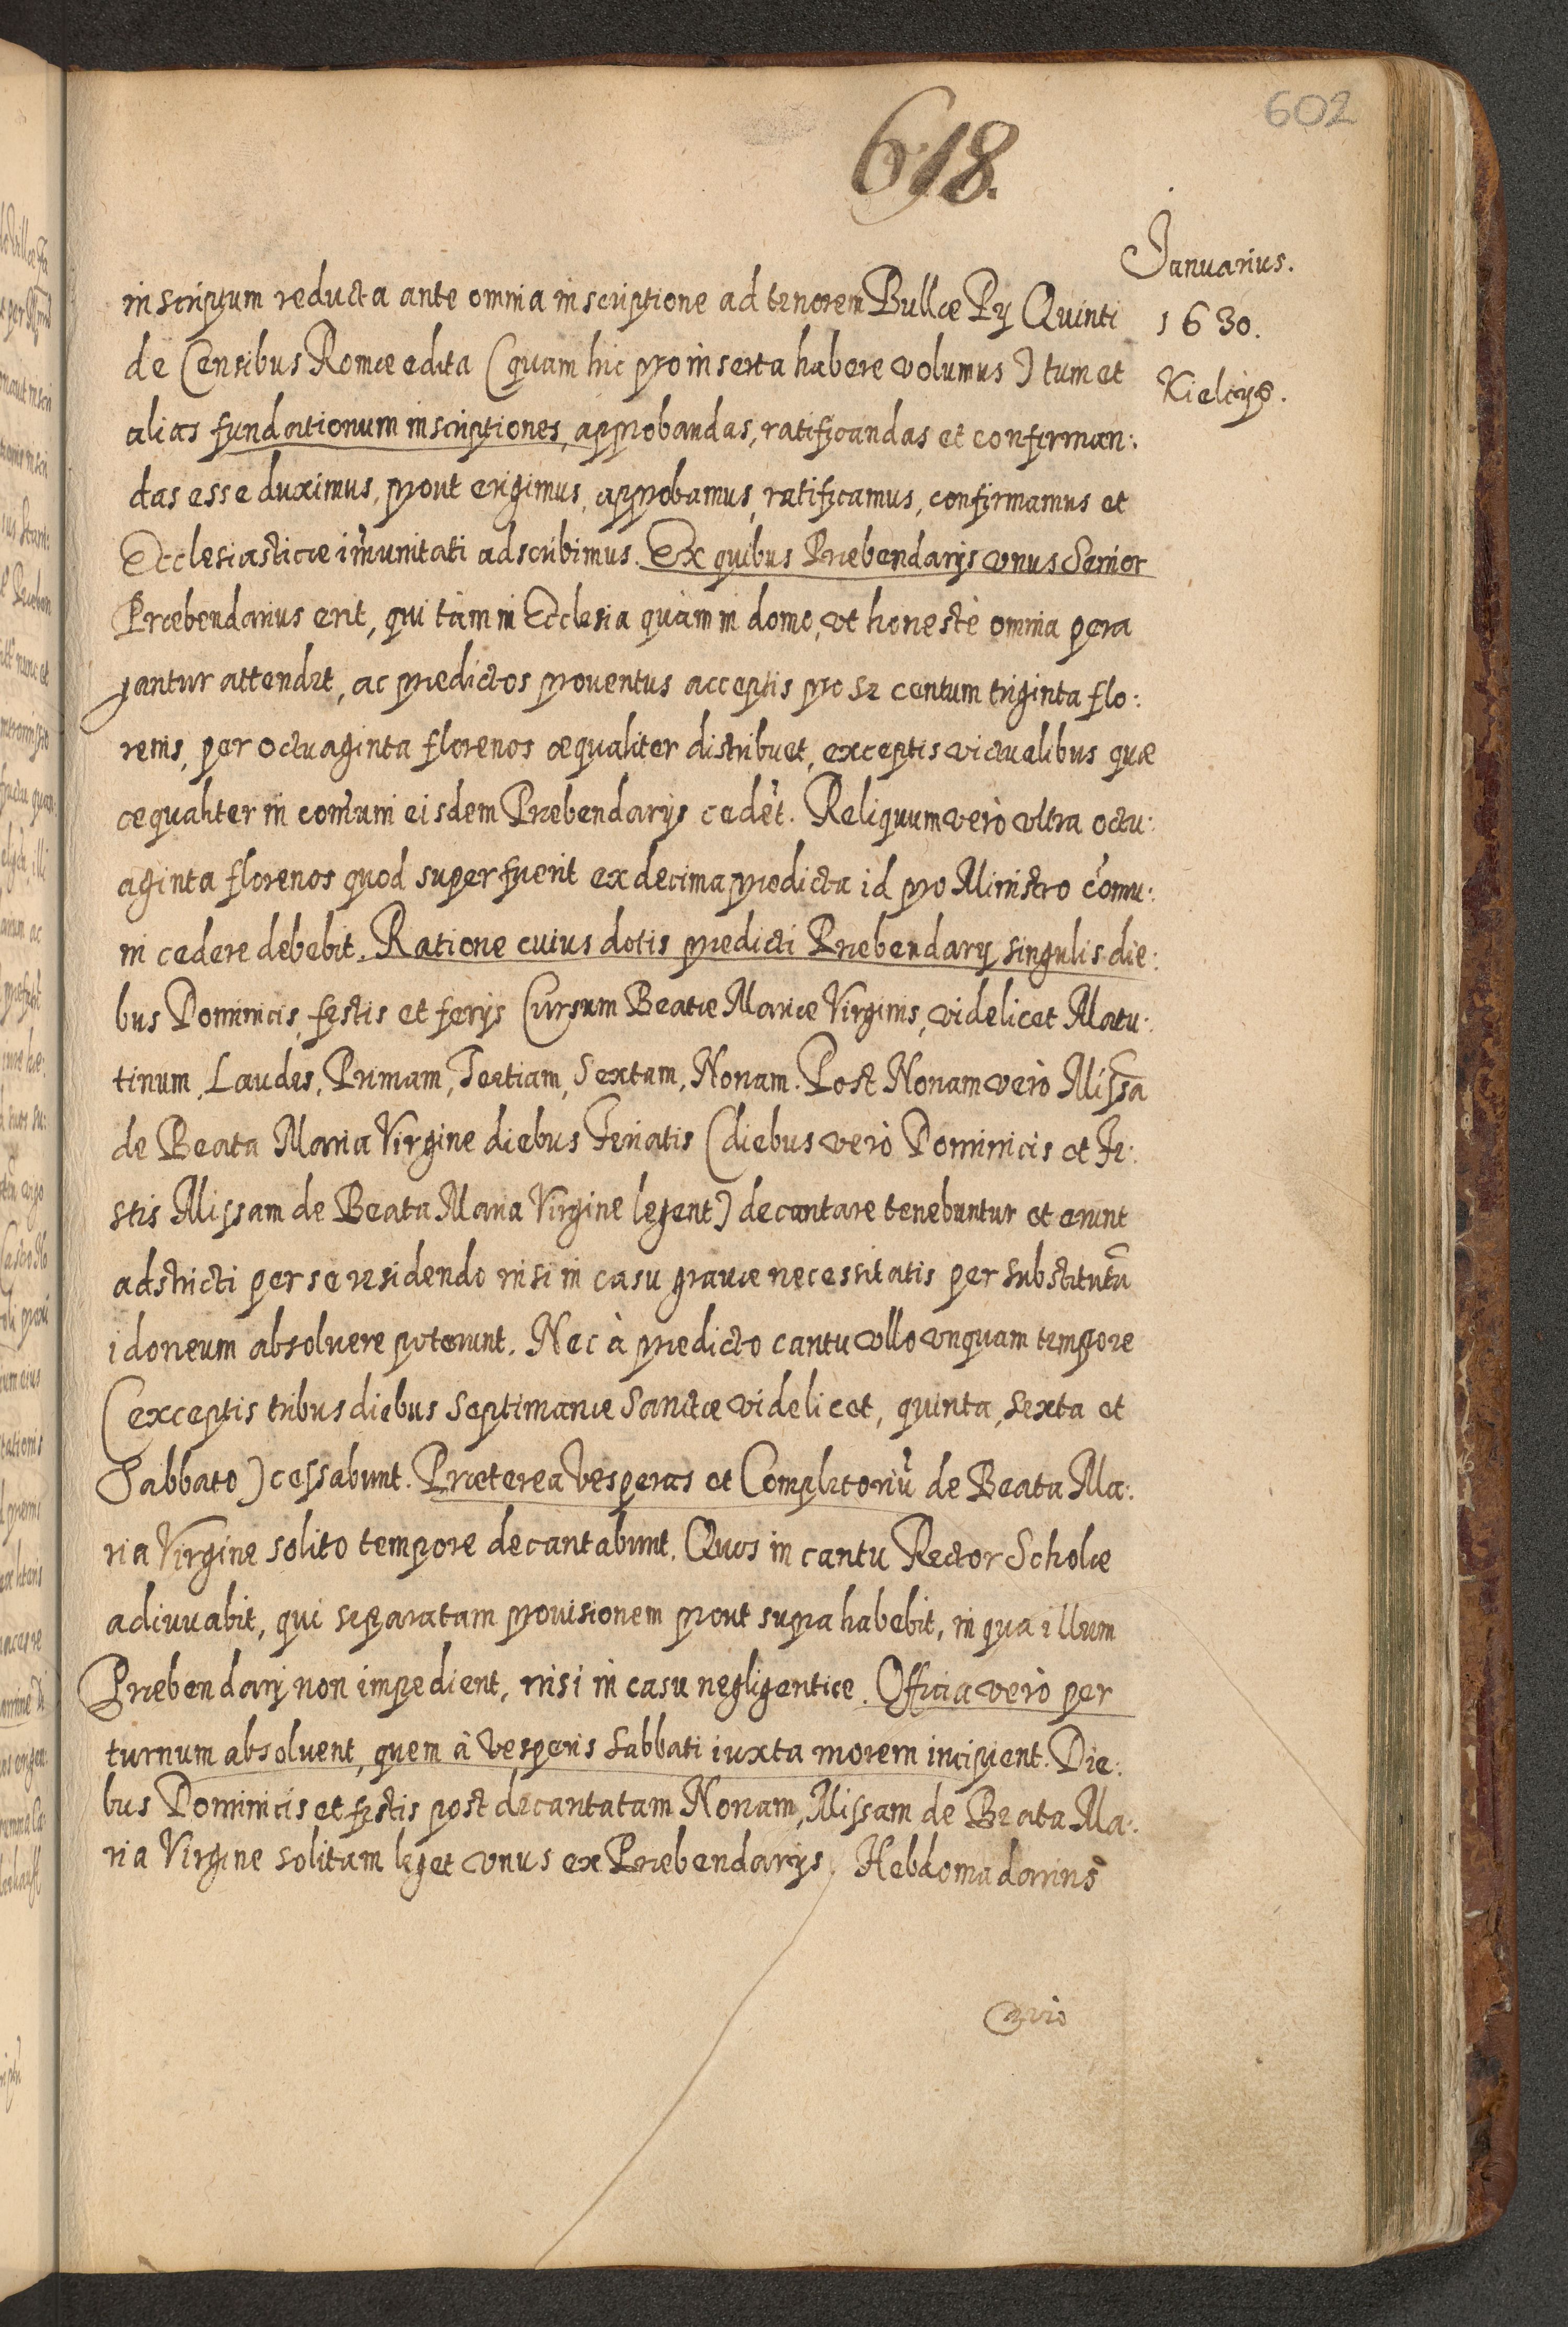 602
618.
Januarius.
1630.
Kielcijs.
inscriptum reducta ante omnia inscriptione ad tenorem Bullæ Pij Quinti
de Censibus Romæ edita (quam hic pro inserta habere volumus) tum et
alias fundationum inscriptiones, approbandas, ratificandas et confirman:
das esse duximus, prout erigimus, approbamus, ratificamus, confirmamus et
Ecclesiasticæ im̃unitati adscribimus. Ex quibus Præbendarijs vnus Senior
Præbendarius erit, qui tàm in Ecclesia quàm in domo, vt honestè omnia pera
gantur attendet, ac prædictos prouentus acceptis pro se centum triginta flo:
renis, per octuaginta florenos æqualiter distribuet, exceptis victualibus quæ
æqualiter in com̃uni eisdem Præbendarijs cedẽt. Reliquum verò vltra octu:
aginta florenos quod superfuerit ex decima prædicta id pro Ministro com̃u:
ni cedere debebit. Ratione cuius dotis prædicti Præbendarij singulis die:
bus Dominicis, festis et ferijs Cursum Beatæ Mariæ Virginis, videlicet Matu:
tinum, Laudes, Primam, Tertiam, Sextam, Nonam. Post Nonam verò Missã
de Beata Maria Virgine diebus Feriatis (diebus verò Dominicis et Fe:
stis Missam de Beata Maria Virgine legent) decantare tenebuntur et erunt
adstricti per se residendo nisi in casu grauæ necessitatis per substitutũ
idoneum absoluere poterunt. Nec à prædicto cantu vllo vnquam tempore
(exceptis tribus diebus Septimanæ Sanctæ videlicet, quinta, sexta et
Sabbato) cessabunt. Præterea Vesperas et Completoriũ de Beata Ma:
ria Virgine solito tempore decantabunt. Quos in cantu Rector Scholæ
adiuuabit, qui separatam prouisionem prout supra habebit, in qua illum
Præbendarij non impedient, nisi in casu negligentiæ. Officia verò per
turnum absoluent, quem à Vesperis Sabbati iuxta morem incipient. Die:
bus Dominicis et festis post decantatam Nonam, Missam de Beata Ma:
ria Virgine solitam leget vnus ex Præbendarijs, Hebdomadarius